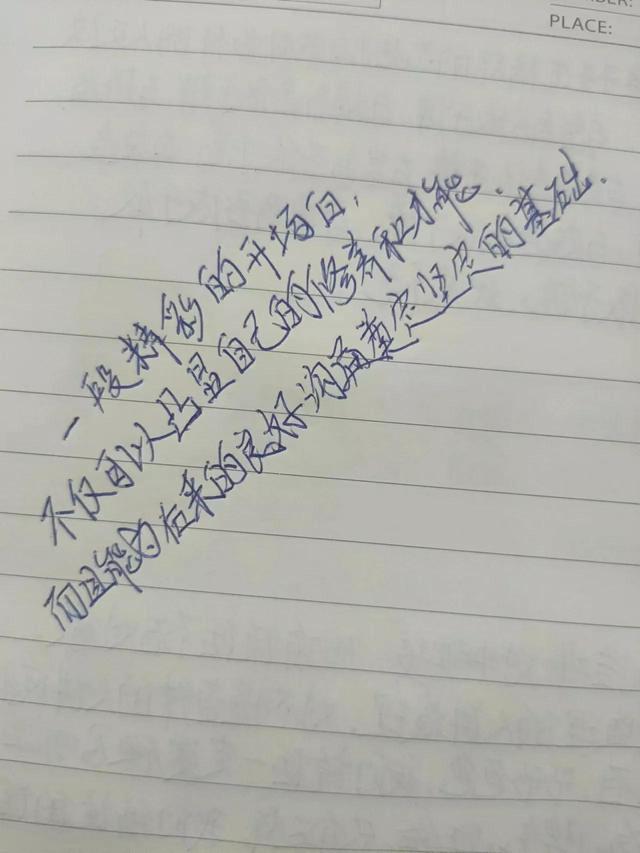 PLACE:
一段精彩的开场白,
不仅可以凸显自己的修养和才能.
而且能为后来的良好沟通奠定坚定的基础.